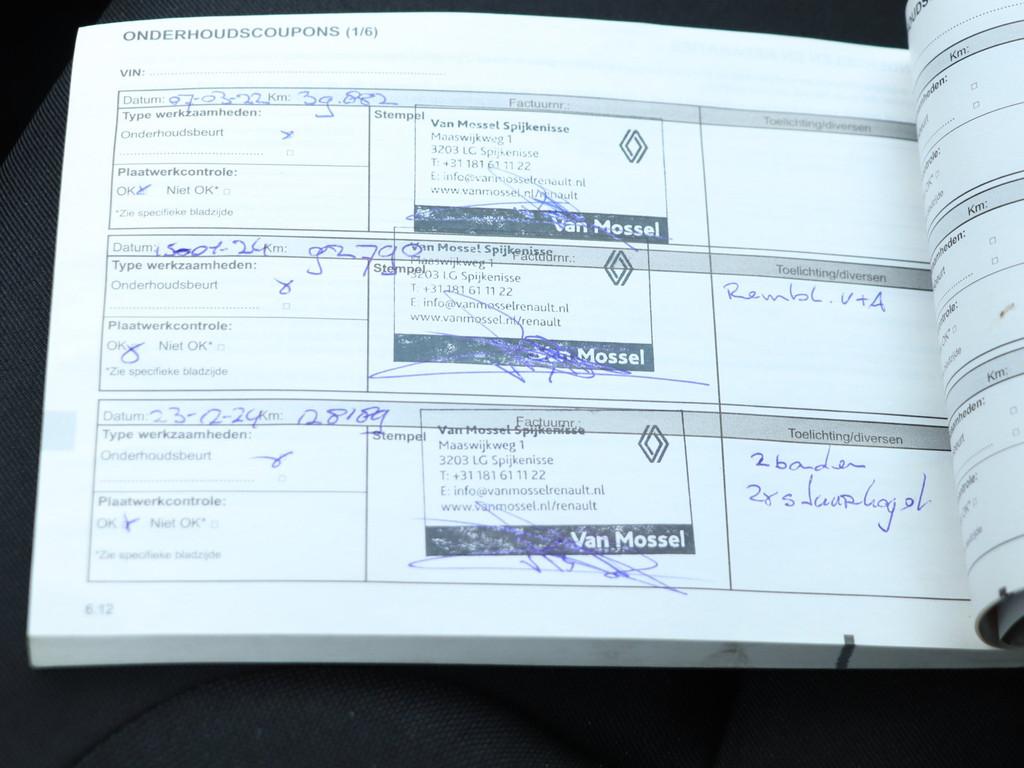 ONDERHOUDSCOUPONS (1/6)
VIN:
Datum: 07-03-22 Km: 39.882 Factuurnr.:
Type werkzaamheden: Stempel Toelichting/diversen
Onderhoudsbeurt x
Plaatwerkcontrole:
OK x Niet OK*
*Zie specifieke bladzijde
Van Mossel Spijkenisse
Maaswijkweg 1
3203 LG Spijkenisse
T: +31 181 61 11 22
E: info@vanmosselrenault.nl
www.vanmossel.nl/renault
Van Mossel
Datum: Km: Factuurnr.:
Type werkzaamheden: Stempel Toelichting/diversen
Onderhoudsbeurt x
Plaatwerkcontrole:
OK x Niet OK*
*Zie specifieke bladzijde
Van Mossel Spijkenisse
Maaswijkweg 1
3203 LG Spijkenisse
T: +31 181 61 11 22
E: info@vanmosselrenault.nl
www.vanmossel.nl/renault
Van Mossel
Rembl. V+A
Datum: 23-12-24 Km: 128189 Factuurnr.:
Type werkzaamheden: Stempel Toelichting/diversen
Onderhoudsbeurt x
Plaatwerkcontrole:
OK x Niet OK*
*Zie specifieke bladzijde
Van Mossel Spijkenisse
Maaswijkweg 1
3203 LG Spijkenisse
T: +31 181 61 11 22
E: info@vanmosselrenault.nl
www.vanmossel.nl/renault
Van Mossel
2 banden
2x stuurkogel
6.12
Km:
Km:
Km: